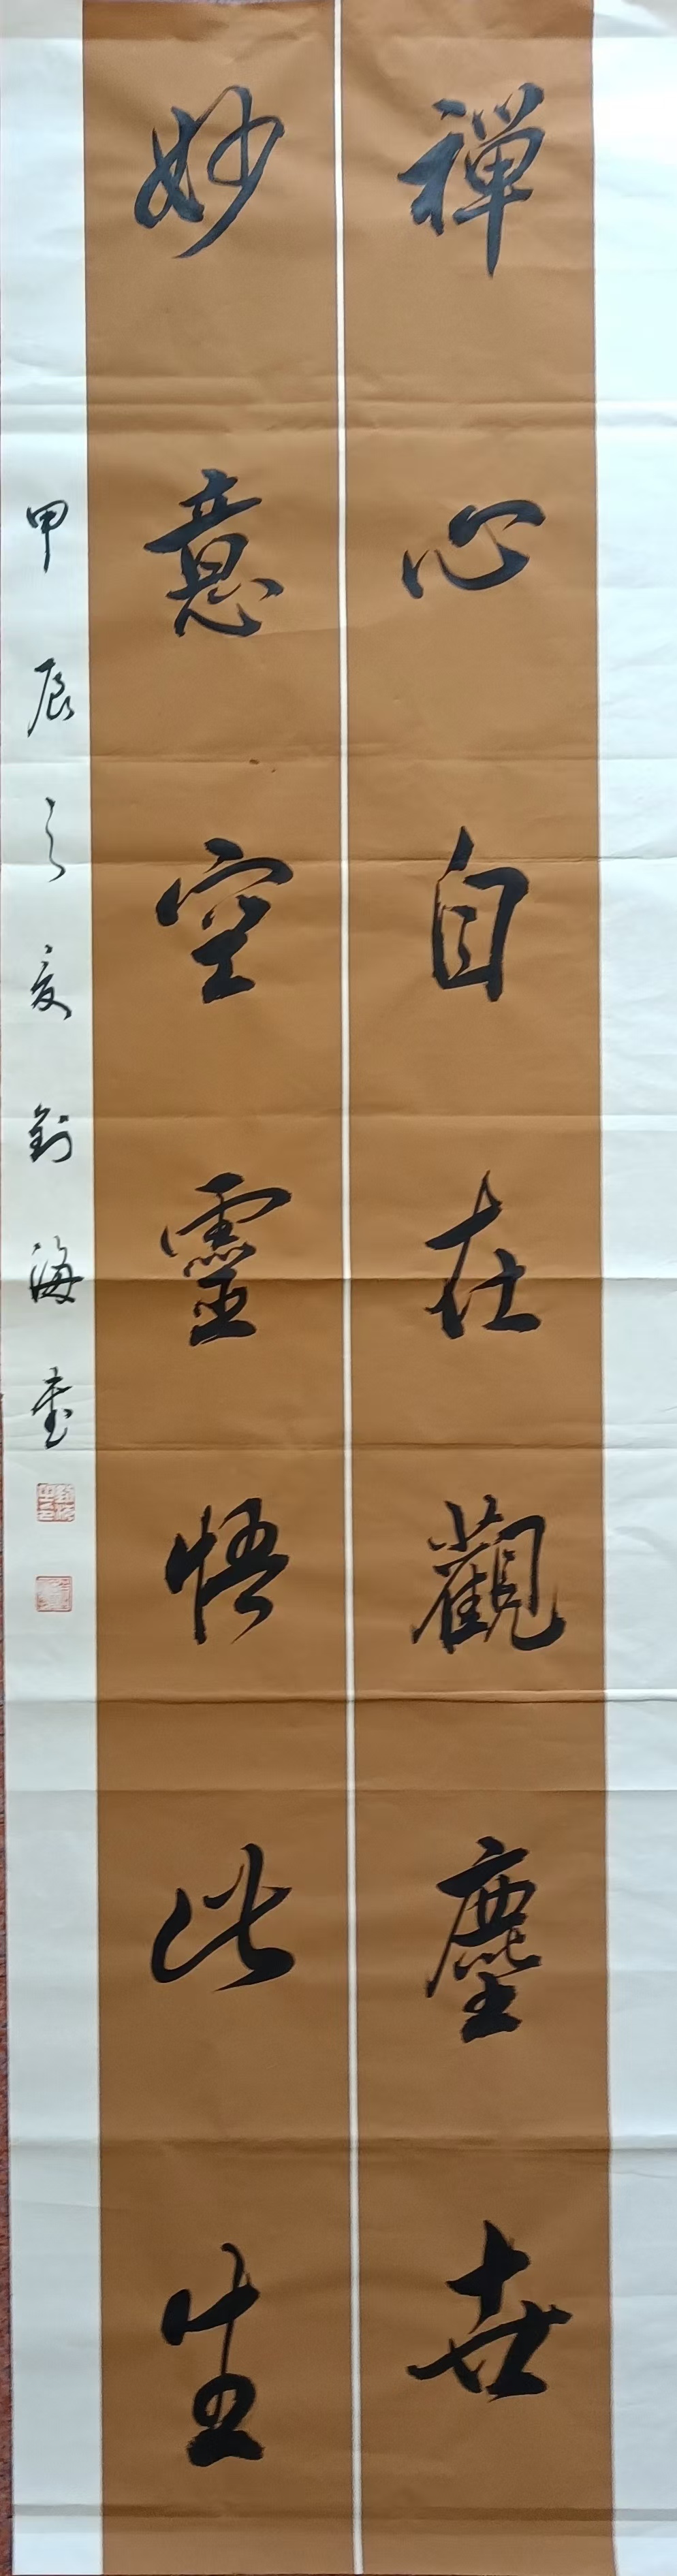 禪心自在觀塵世
妙意空靈悟此生
甲辰之夏劉海書